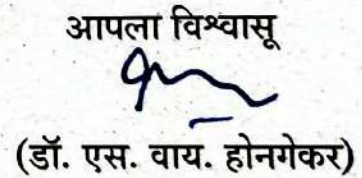 आपला विश्वासू
(डॉ. एस. वाय. होनगेकर)